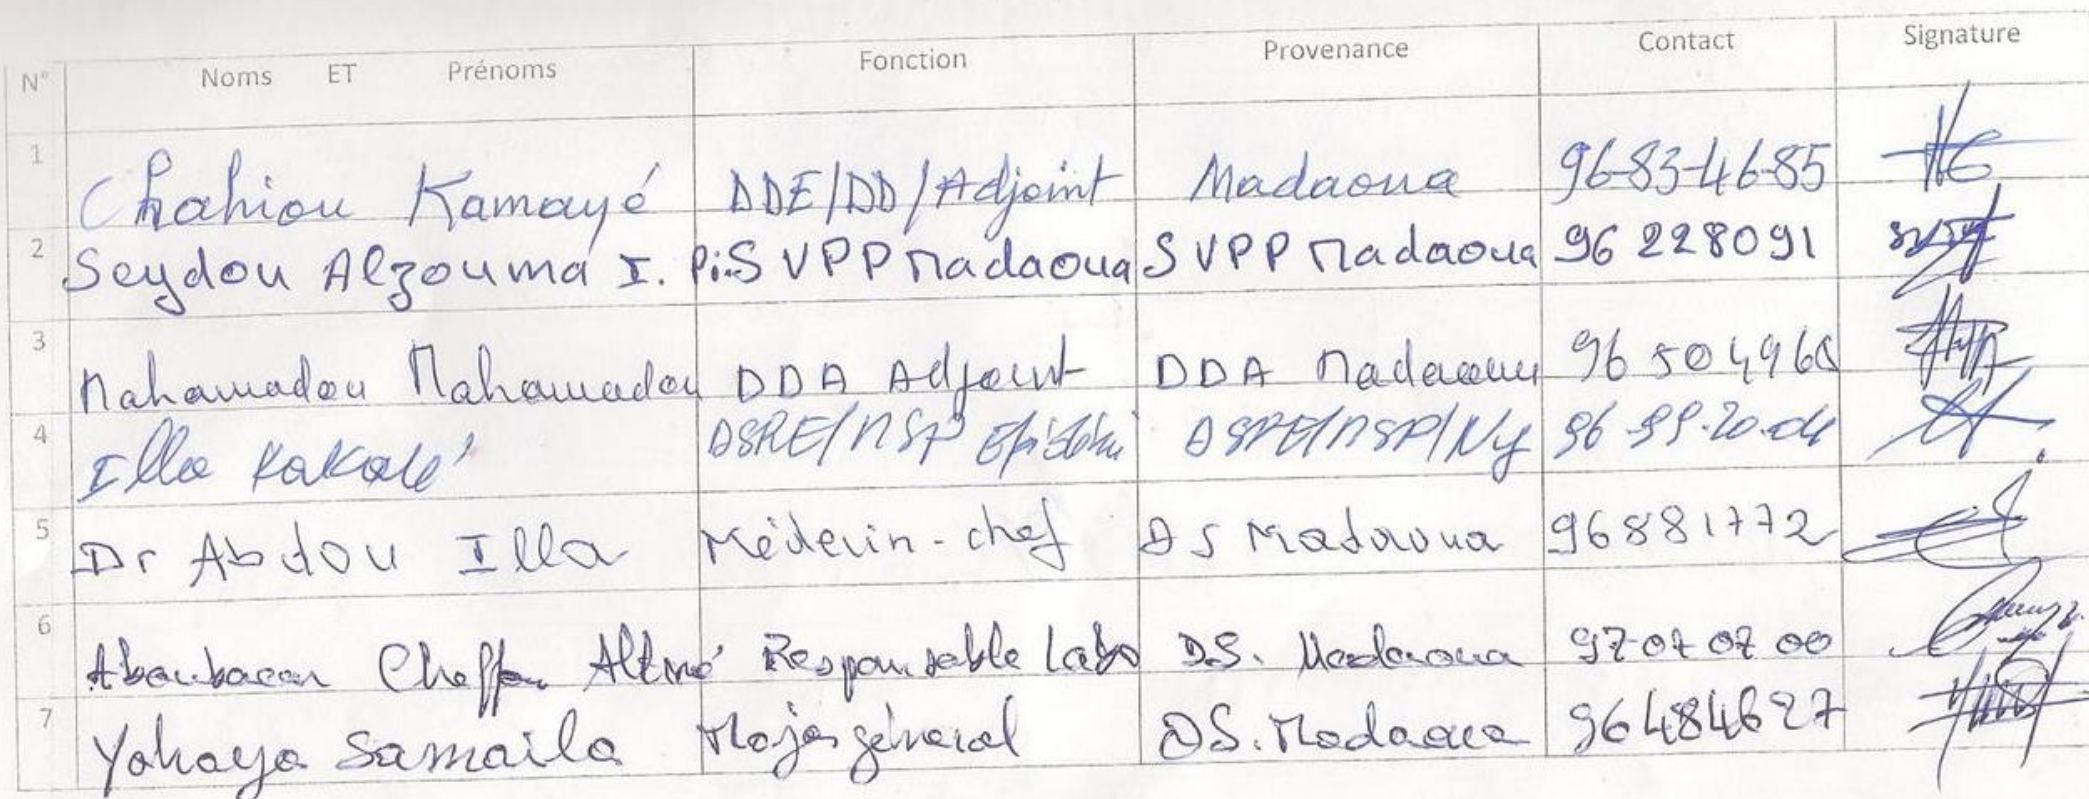 N° Noms ET Prénoms Fonction Provenance Contact Signature
1 Chahiou Kamayé DDE/DD/Adjoint Madaoua 96-83-46-85
2 Seydou Alzouma I. P/i SVPP Madaoua SVPP Madaoua 96 228091
3 Mahamadou Mahamadou DDA Adjoint DDA Madaoua
4 Illa Kakalé DSRE/MSP DSRE/MSP/Ny
5 Dr Abdou Illa Médecin-chef DS Madaoua 96881772
6 Aboubacar Responsable Labo D.S. Madaoua 97 07 07 00
7 Yahaya Samaila Major général DS. Madaoua 96484627